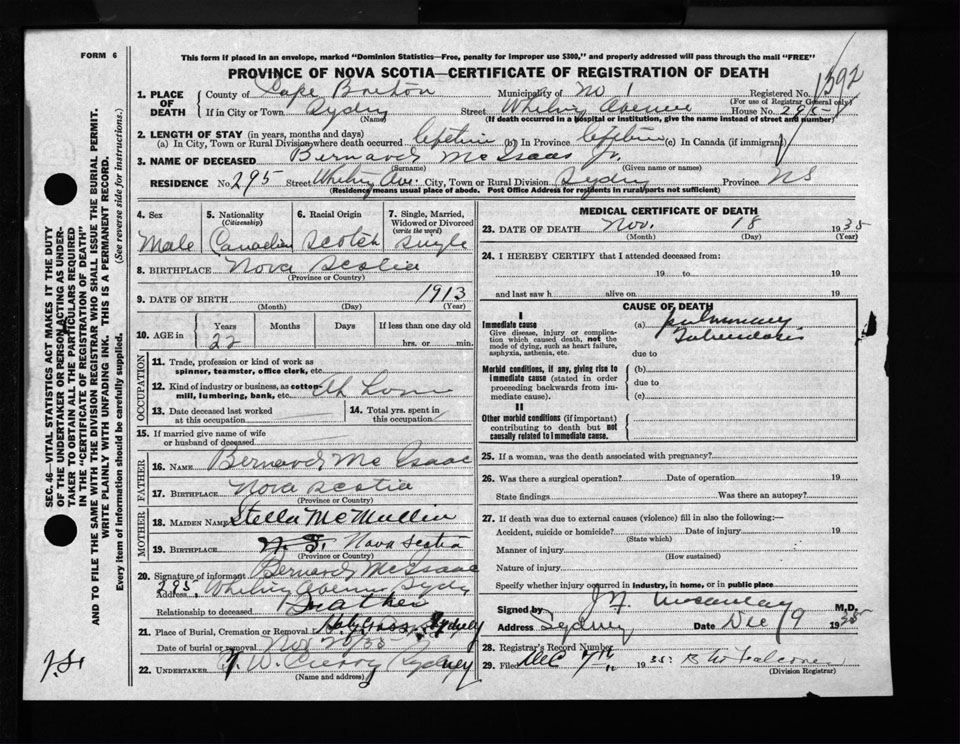 FORM 6
This form if placed in an envelope, marked "Dominion Statistics—Free, penalty for improper use $300," and properly addressed will pass through the mail "FREE"
PROVINCE OF NOVA SCOTIA—CERTIFICATE OF REGISTRATION OF DEATH
1592
1. PLACE OF DEATH
County of Cape Breton Municipality of No 1 Registered No.
(For use of Registrar General only)
If in City or Town Sydney Street Whitney Avenue House No. 295
(Name) (If death occurred in a hospital or institution, give the name instead of street and number)
2. LENGTH OF STAY (in years, months and days)
(a) In City, Town or Rural Division where death occurred lifetime (b) In Province lifetime (c) In Canada (if immigrant)
3. NAME OF DECEASED Bernard McIsaac Jr.
(Surname) (Given name or names)
RESIDENCE No. 295 Street Whitney Ave. City, Town or Rural Division Sydney Province NS
(Residence means usual place of abode. Post Office Address for residents in rural parts not sufficient)
4. Sex
Male
5. Nationality
(Citizenship)
Canadian
6. Racial Origin
Scotch
7. Single, Married, Widowed or Divorced
(write the word)
Single
8. BIRTHPLACE Nova Scotia
(Province or Country)
9. DATE OF BIRTH 1913
(Month) (Day) (Year)
10. AGE in
Years Months Days If less than one day old
22 hrs. or min.
OCCUPATION
11. Trade, profession or kind of work as
spinner, teamster, office clerk, etc.
12. Kind of industry or business, as cotton-
mill, lumbering, bank, etc. At home
13. Date deceased last worked
at this occupation
14. Total yrs. spent in
this occupation
15. If married give name of wife
or husband of deceased
FATHER
16. NAME Bernard McIsaac
17. BIRTHPLACE Nova Scotia
(Province or Country)
MOTHER
18. MAIDEN NAME Stella McMullin
19. BIRTHPLACE N. S. Nova Scotia
(Province or Country)
20. Signature of informant Bernard McIsaac
Address 295 Whitney Avenue Sydney
Relationship to deceased
21. Place of Burial, Cremation or Removal Holy Cross, Sydney
Date of burial or removal Nov 20/35
22. UNDERTAKER Sydney
(Name and address)
MEDICAL CERTIFICATE OF DEATH
23. DATE OF DEATH Nov. 18 1935
(Month) (Day) (Year)
24. I HEREBY CERTIFY that I attended deceased from:
19 to 19
and last saw h alive on 19
CAUSE OF DEATH
I
Immediate cause
Give disease, injury or complica-
tion which caused death, not the
mode of dying, such as heart failure,
asphyxia, asthenia, etc.
(a) Pulmonary Tuberculosis
due to
Morbid conditions, if any, giving rise to
immediate cause (stated in order
proceeding backwards from im-
mediate cause).
(b)
due to
(c)
II
Other morbid conditions (if important)
contributing to death but not
causally related to immediate cause.
25. If a woman, was the death associated with pregnancy?
26. Was there a surgical operation? Date of operation 19
State findings Was there an autopsy?
27. If death was due to external causes (violence) fill in also the following:—
Accident, suicide or homicide? Date of injury 19
(State which)
Manner of injury
(How sustained)
Nature of injury
Specify whether injury occurred in industry, in home, or in public place
Signed by M.D.
Address Sydney Date Dec 1935
28. Registrar's Record Number
29. Filed Dec 7th 1935
(Division Registrar)
SEC. 46—VITAL STATISTICS ACT MAKES IT THE DUTY
OF THE UNDERTAKER OR PERSON ACTING AS UNDER-
TAKER TO OBTAIN ALL THE PARTICULARS REQUIRED
IN THE "CERTIFICATE OF REGISTRATION OF DEATH"
AND TO FILE THE SAME WITH THE DIVISION REGISTRAR WHO SHALL ISSUE THE BURIAL PERMIT.
WRITE PLAINLY WITH UNFADING INK. THIS IS A PERMANENT RECORD.
Every item of information should be carefully supplied. (See reverse side for instructions.)